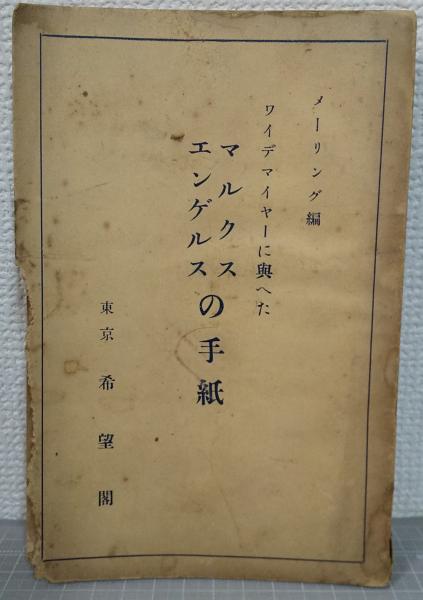 メーリング編
ワイデマイヤーに與へた
マルクス
エンゲルス
の手紙
東京 希望閣